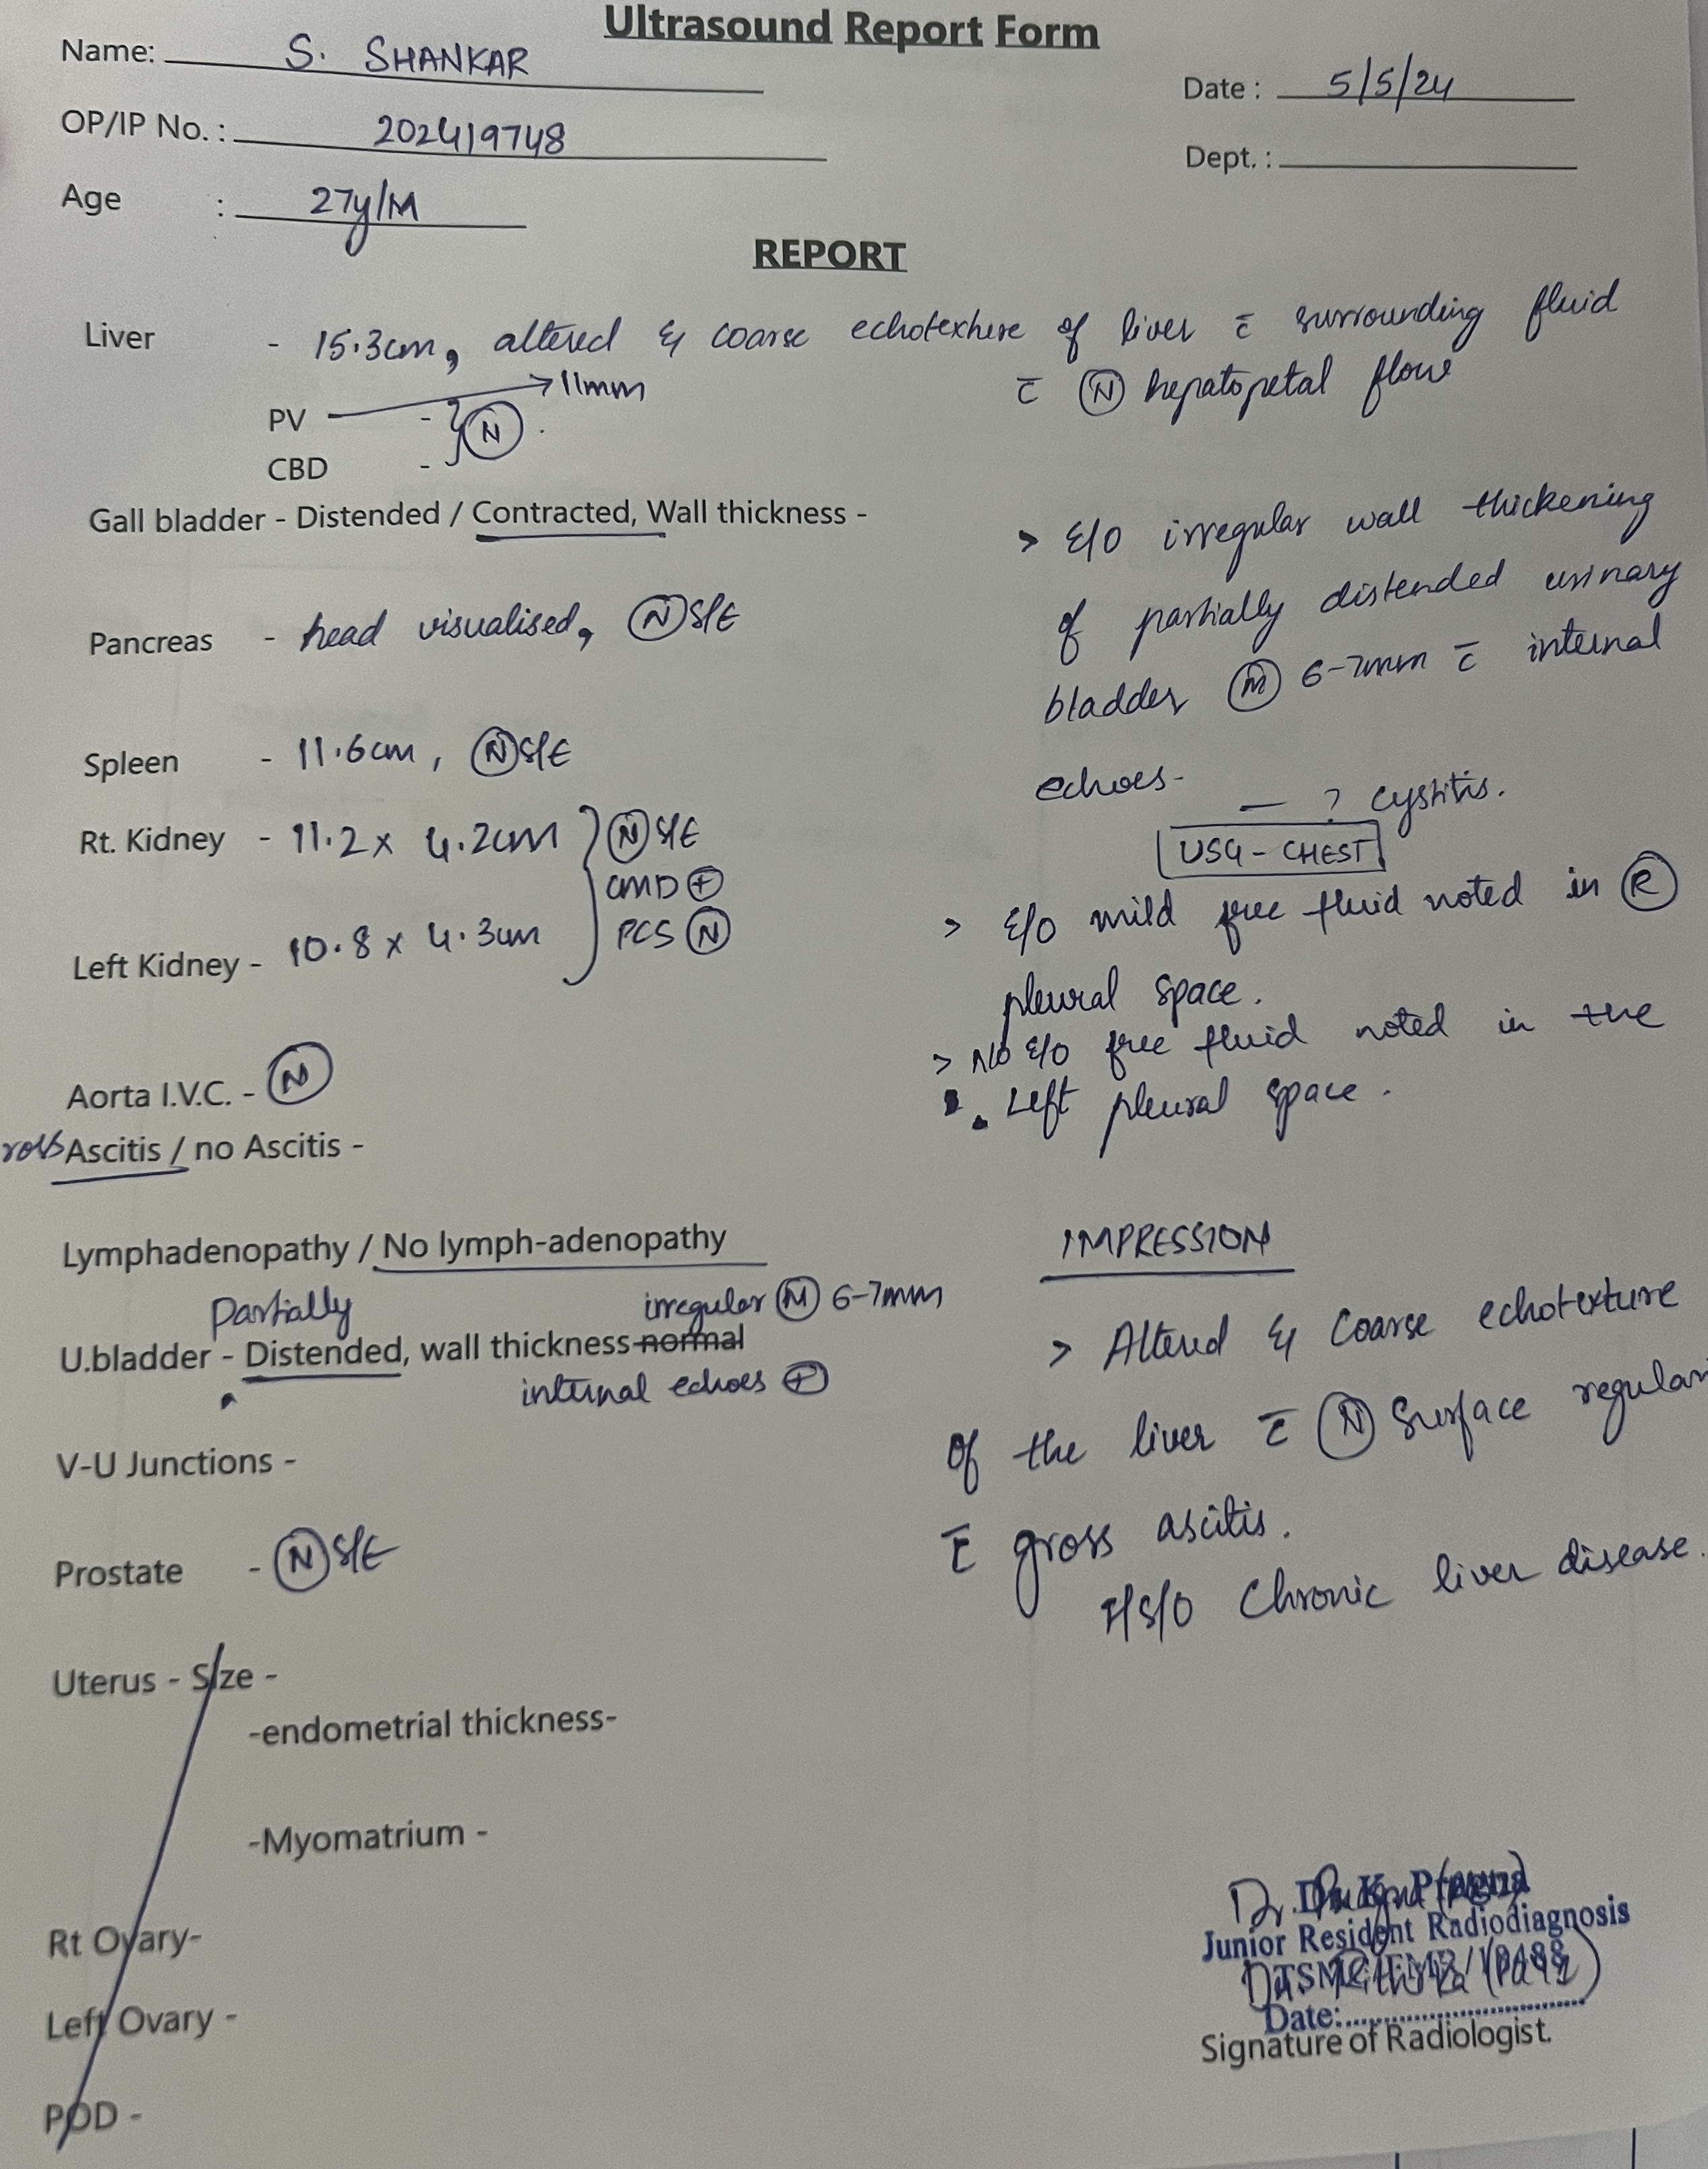 Ultrasound Report Form
Name: S. SHANKAR
Date : 5/5/24
OP/IP No. : 202419748
Dept. :
Age : 27y/M
REPORT
Liver - 15.3cm, altered & coarse echotexture of liver c̄ surrounding fluid
c̄ Ⓝ hepatopetal flow
PV - → 11mm
} Ⓝ
CBD -
Gall bladder - Distended / Contracted, Wall thickness -
Pancreas - head visualised, Ⓝ S/E
Spleen - 11.6cm, Ⓝ S/E
Rt. Kidney - 11.2 x 4.2cm } Ⓝ S/E
CMD ⊕
Left Kidney - 10.8 x 4.3cm PCS Ⓝ
Aorta I.V.C. - Ⓝ
Ascitis / no Ascitis -
Lymphadenopathy / No lymph-adenopathy
Partially irregular Ⓜ 6-7mm
U.bladder - Distended, wall thickness-normal
internal echoes ⊕
V-U Junctions -
Prostate - Ⓝ S/E
Uterus - Size -
-endometrial thickness-
-Myomatrium -
Rt Ovary-
Left Ovary -
POD -
> E/O irregular wall thickening
of partially distended urinary
bladder Ⓜ 6-7mm c̄ internal
echoes-
— ? cystitis.
USG - CHEST
> E/O mild free fluid noted in Ⓡ
pleural space.
> No E/O free fluid noted in the
Left pleural space.
IMPRESSION
> Altered & Coarse echotexture
of the liver c̄ Ⓝ Surface
c̄ gross ascitis.
F/S/O Chronic liver disease.
Dr. K. Pragna
Junior Resident Radiodiagnosis
Date:
Signature of Radiologist.